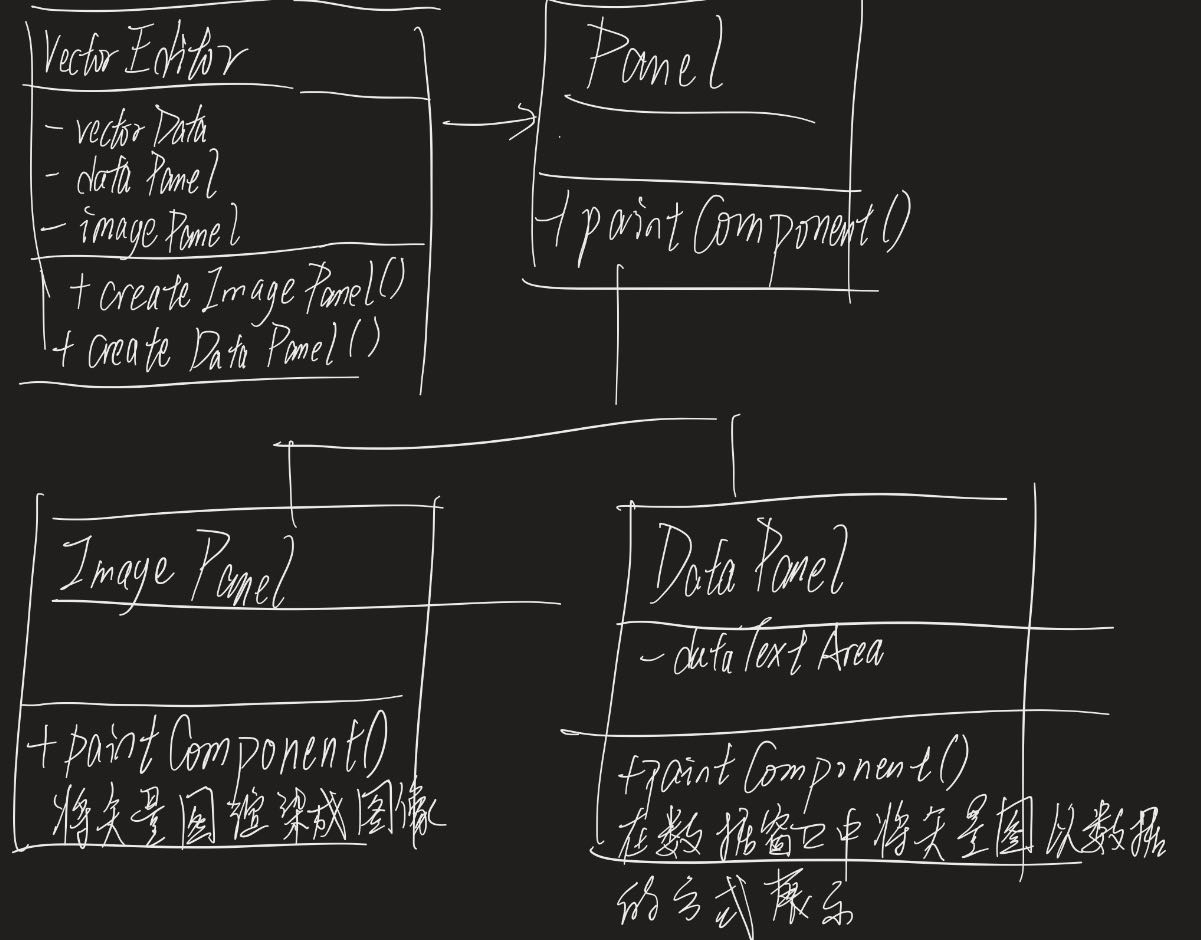 Vector Editor
- vector Data
- data Panel
- image Panel
+ create Image Panel()
+ create Data Panel()
Panel
+ paint Component()
Image Panel
+ paint Component()
将矢量图渲染成图像
Data Panel
- data Text Area
+ paint Component()
在数据窗口中将矢量图以数据
的方式展示